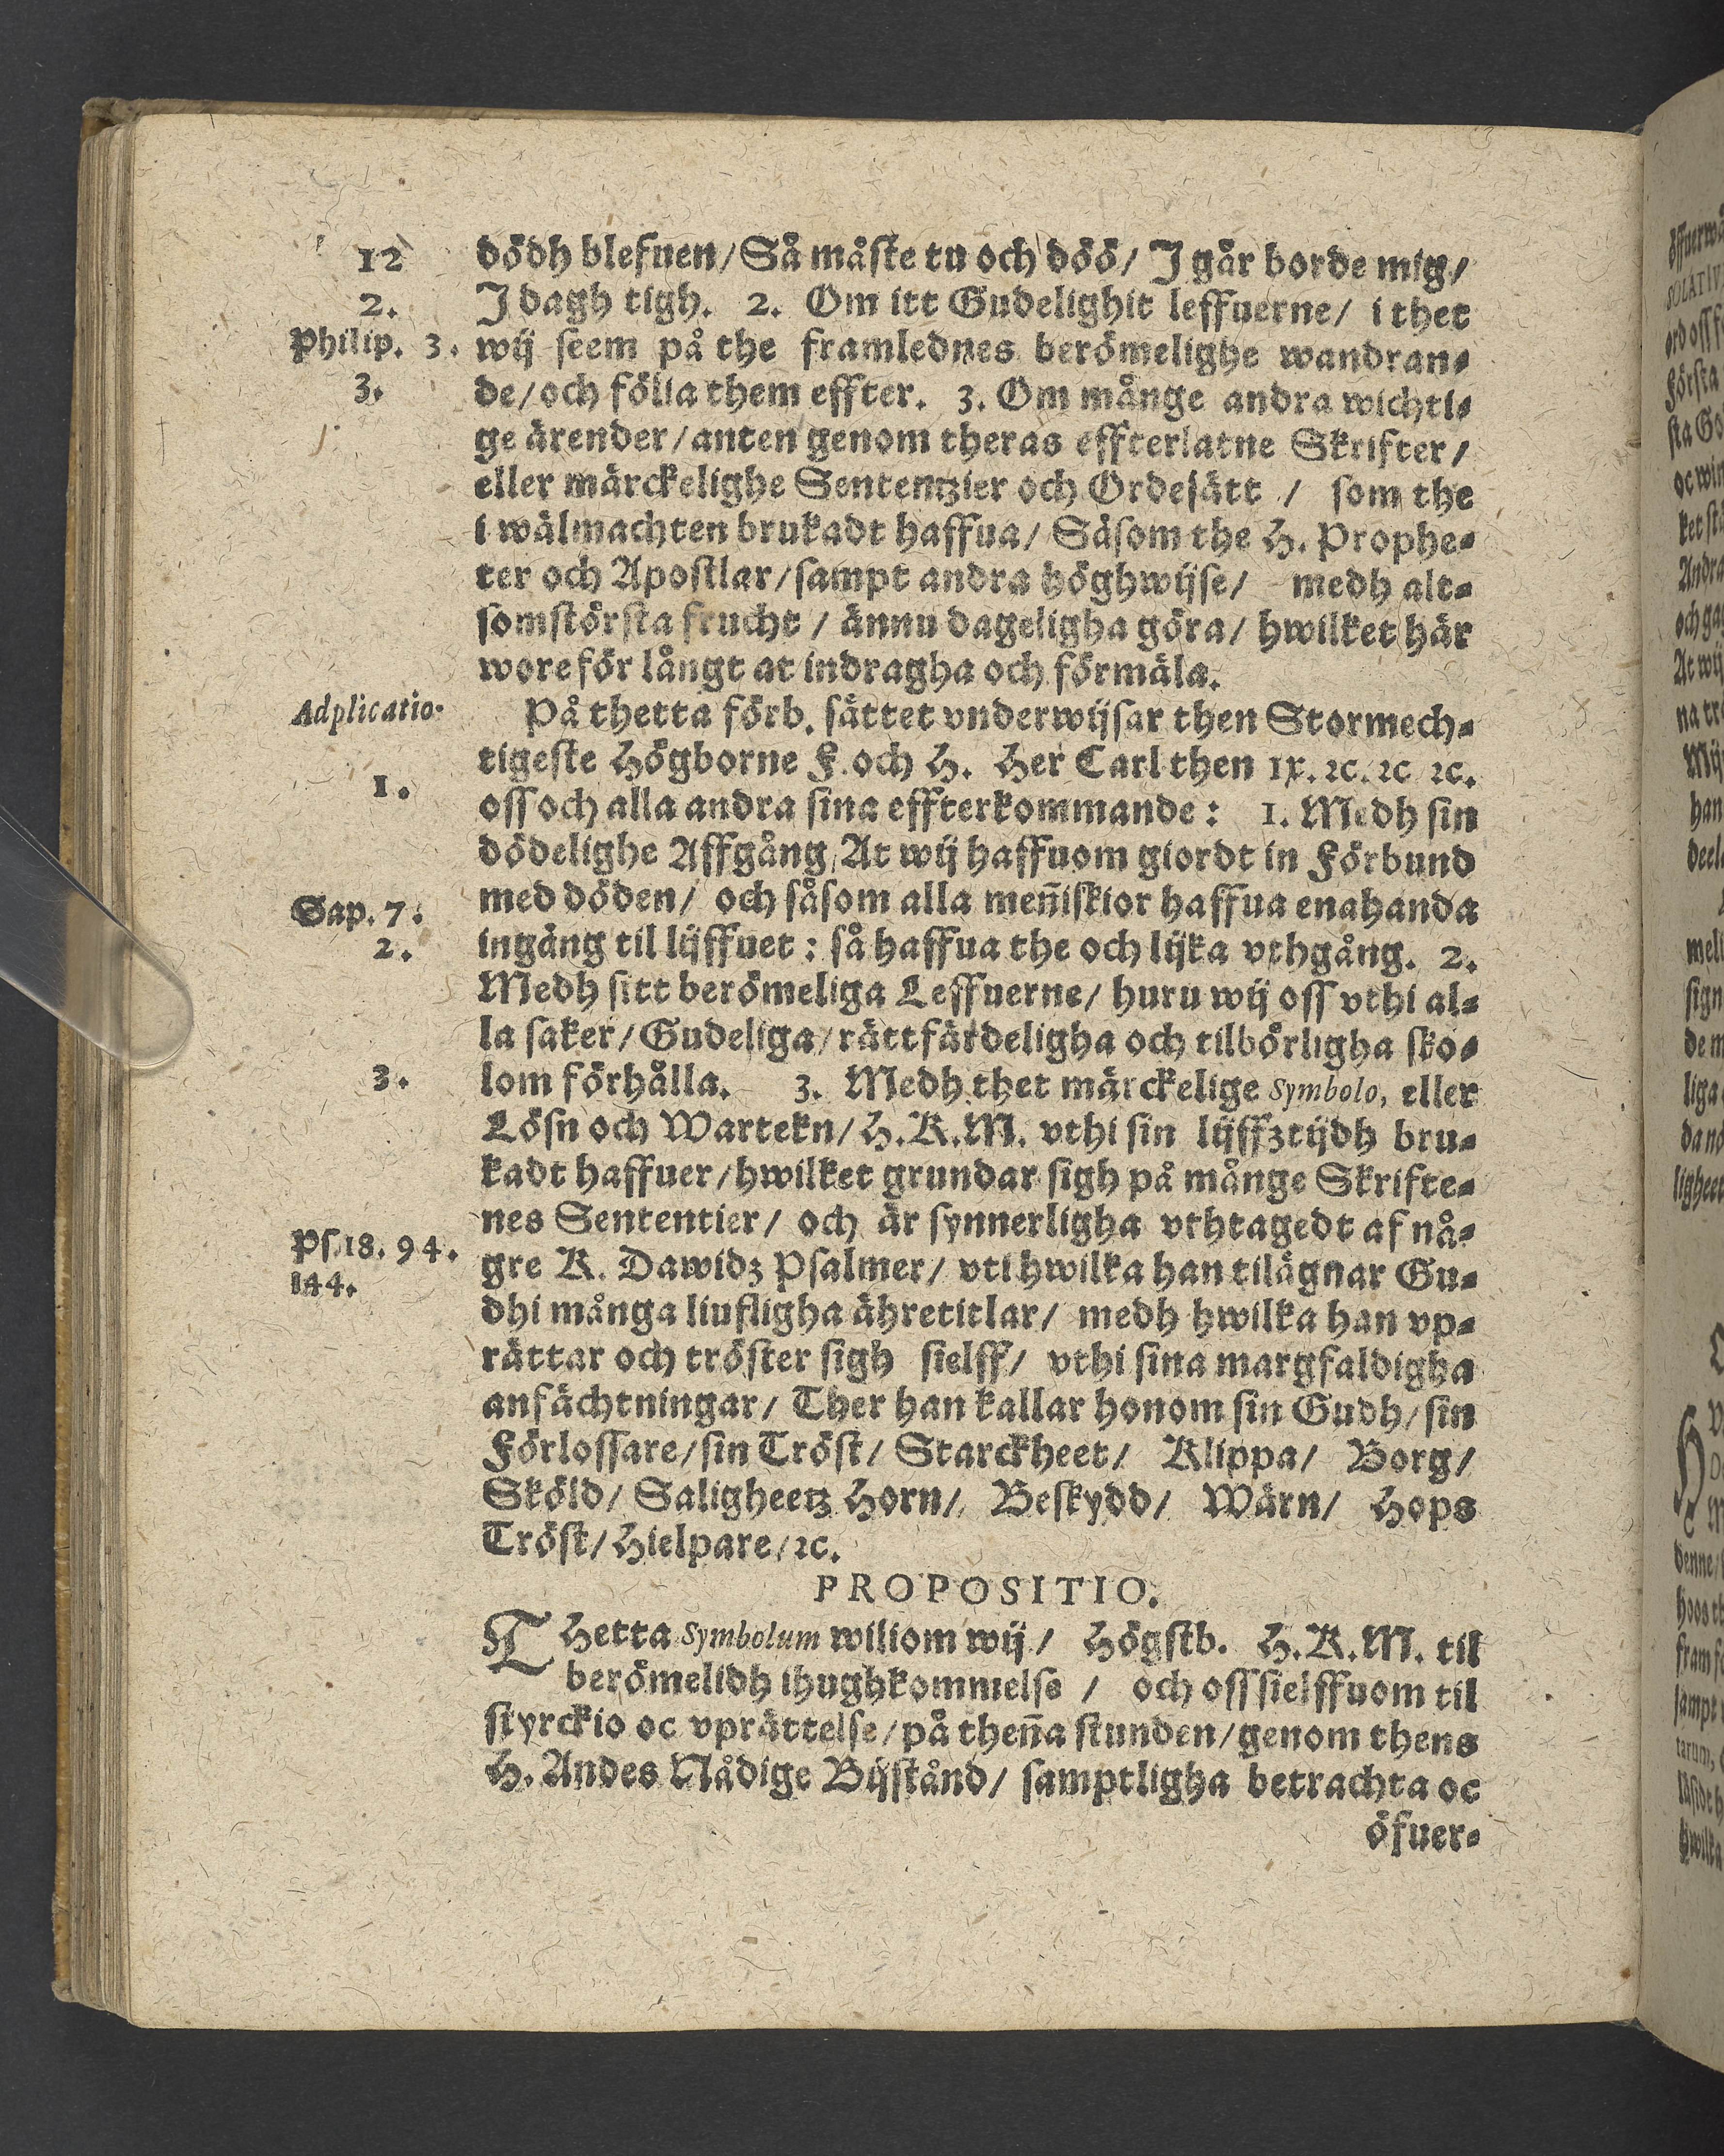 12
dödh blefuen/ Så måste tu och döö/ I går borde mig/
2.
I dagh tigh. 2. Om itt Gudelighit leffuerne/ i thet
Philip. 3.
wij seem på the framlednes berömelighe wandran⸗
3.
de/ och föllia them effter. 3. Om månge andra wichti⸗
ge ärender/ anten genom theras effterlatne Skrifter/
eller märckelighe Sententzier och Ordesätt / som the
i wälmachten brukadt haffua/ Såsom the H. Prophe⸗
ter och Apostlar/ sampt andra höghwijse/ medh alt⸗
somstörsta frucht / ännu dageligha göra/ hwilket här
wore för långt at indragha och förmäla.
Adplicatio.
På thetta förb. sättet vnderwijsar then Stormech⸗
tigeste Högborne F. och H. Her Carl then IX. ꝛc. ꝛc ꝛc.
1.
oss och alla andra sina effterkommande: 1. Medh sin
dödelighe Affgång/ At wij haffuom giordt in Förbund
Sap. 7.
med döden/ och såsom alla men̄iskior haffua enahanda
2.
ingång til lijffuet: så haffua the och lijka vthgång. 2.
Medh sitt berömeliga Leffuerne/ huru wij oss vthi al⸗
la saker/ Gudeliga/ rättfärdeligha och tilbörligha sko⸗
3.
lom förhålla. 3. Medh thet märckelige Symbolo, eller
Lösn och Wartekn/ H. K. M. vthi sin lijffztijdh bru⸗
kadt haffuer/ hwilket grundar sigh på månge Skrifte⸗
nes Sententier/ och är synnerligha vthtagedt af nå⸗
Ps. 18. 94.
gre K. Dawidz Psalmer/ vti hwilka han tilägnar Gu⸗
144.
dhi många liufligha ähretitlar/ medh hwilka han vp⸗
rättar och tröster sigh sielff/ vthi sina margfaldigha
anfächtningar/ Ther han kallar honom sin Gudh/ sin
Förlossare/ sin Tröst/ Starckheet/ Klippa/ Borg/
Sköld/ Saligheetz Horn/ Beskydd/ Wärn/ Hops
Tröst/ Hielpare/ ꝛc.
PROPOSITIO.
THetta Symbolum wiliom wij/ Högstb. H. K. M. til
berömelidh ihughkommelse / och oss sielffuom til
styrckio oc vprättelse/ på then̄a stunden/ genom thens
H. Andes Nådige Bijstånd/ samptligha betrachta oc
öfuer⸗